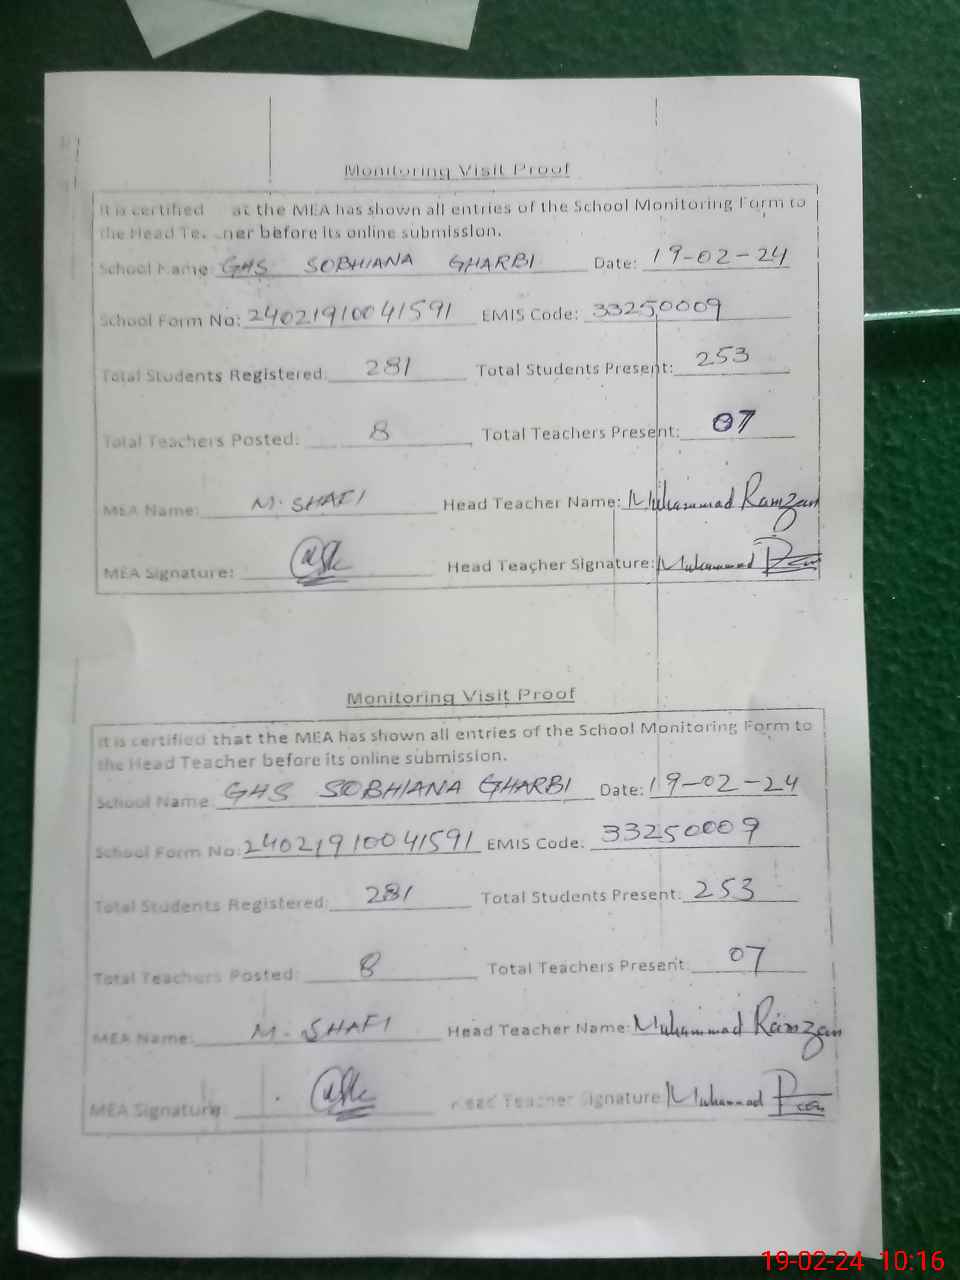 Monitoring Visit Proof
It is certified at the MEA has shown all entries of the School Monitoring Form to
the Head Te. ner before its online submission.
School Name: GHS SOBHIANA GHARBI Date: 19-02-24
School Form No: 24021910041591 EMIS Code: 33250009
Total Students Registered: 281 Total Students Present: 253
Total Teachers Posted: 8 Total Teachers Present: 07
MEA Name: M. SHAFI Head Teacher Name: Muhammad Ramzan
MEA Signature: Head Teacher Signature: Muhammad
Monitoring Visit Proof
It is certified that the MEA has shown all entries of the School Monitoring Form to
the Head Teacher before its online submission.
School Name: GHS SOBHIANA GHARBI Date: 19-02-24
School Form No: 24021910041591 EMIS Code: 33250009
Total Students Registered: 281 Total Students Present: 253
Total Teachers Posted: 8 Total Teachers Present: 07
MEA Name: M. SHAFI Head Teacher Name: Muhammad Ramzan
MEA Signature: Head Teacher Signature: Muhammad
19-02-24 10:16